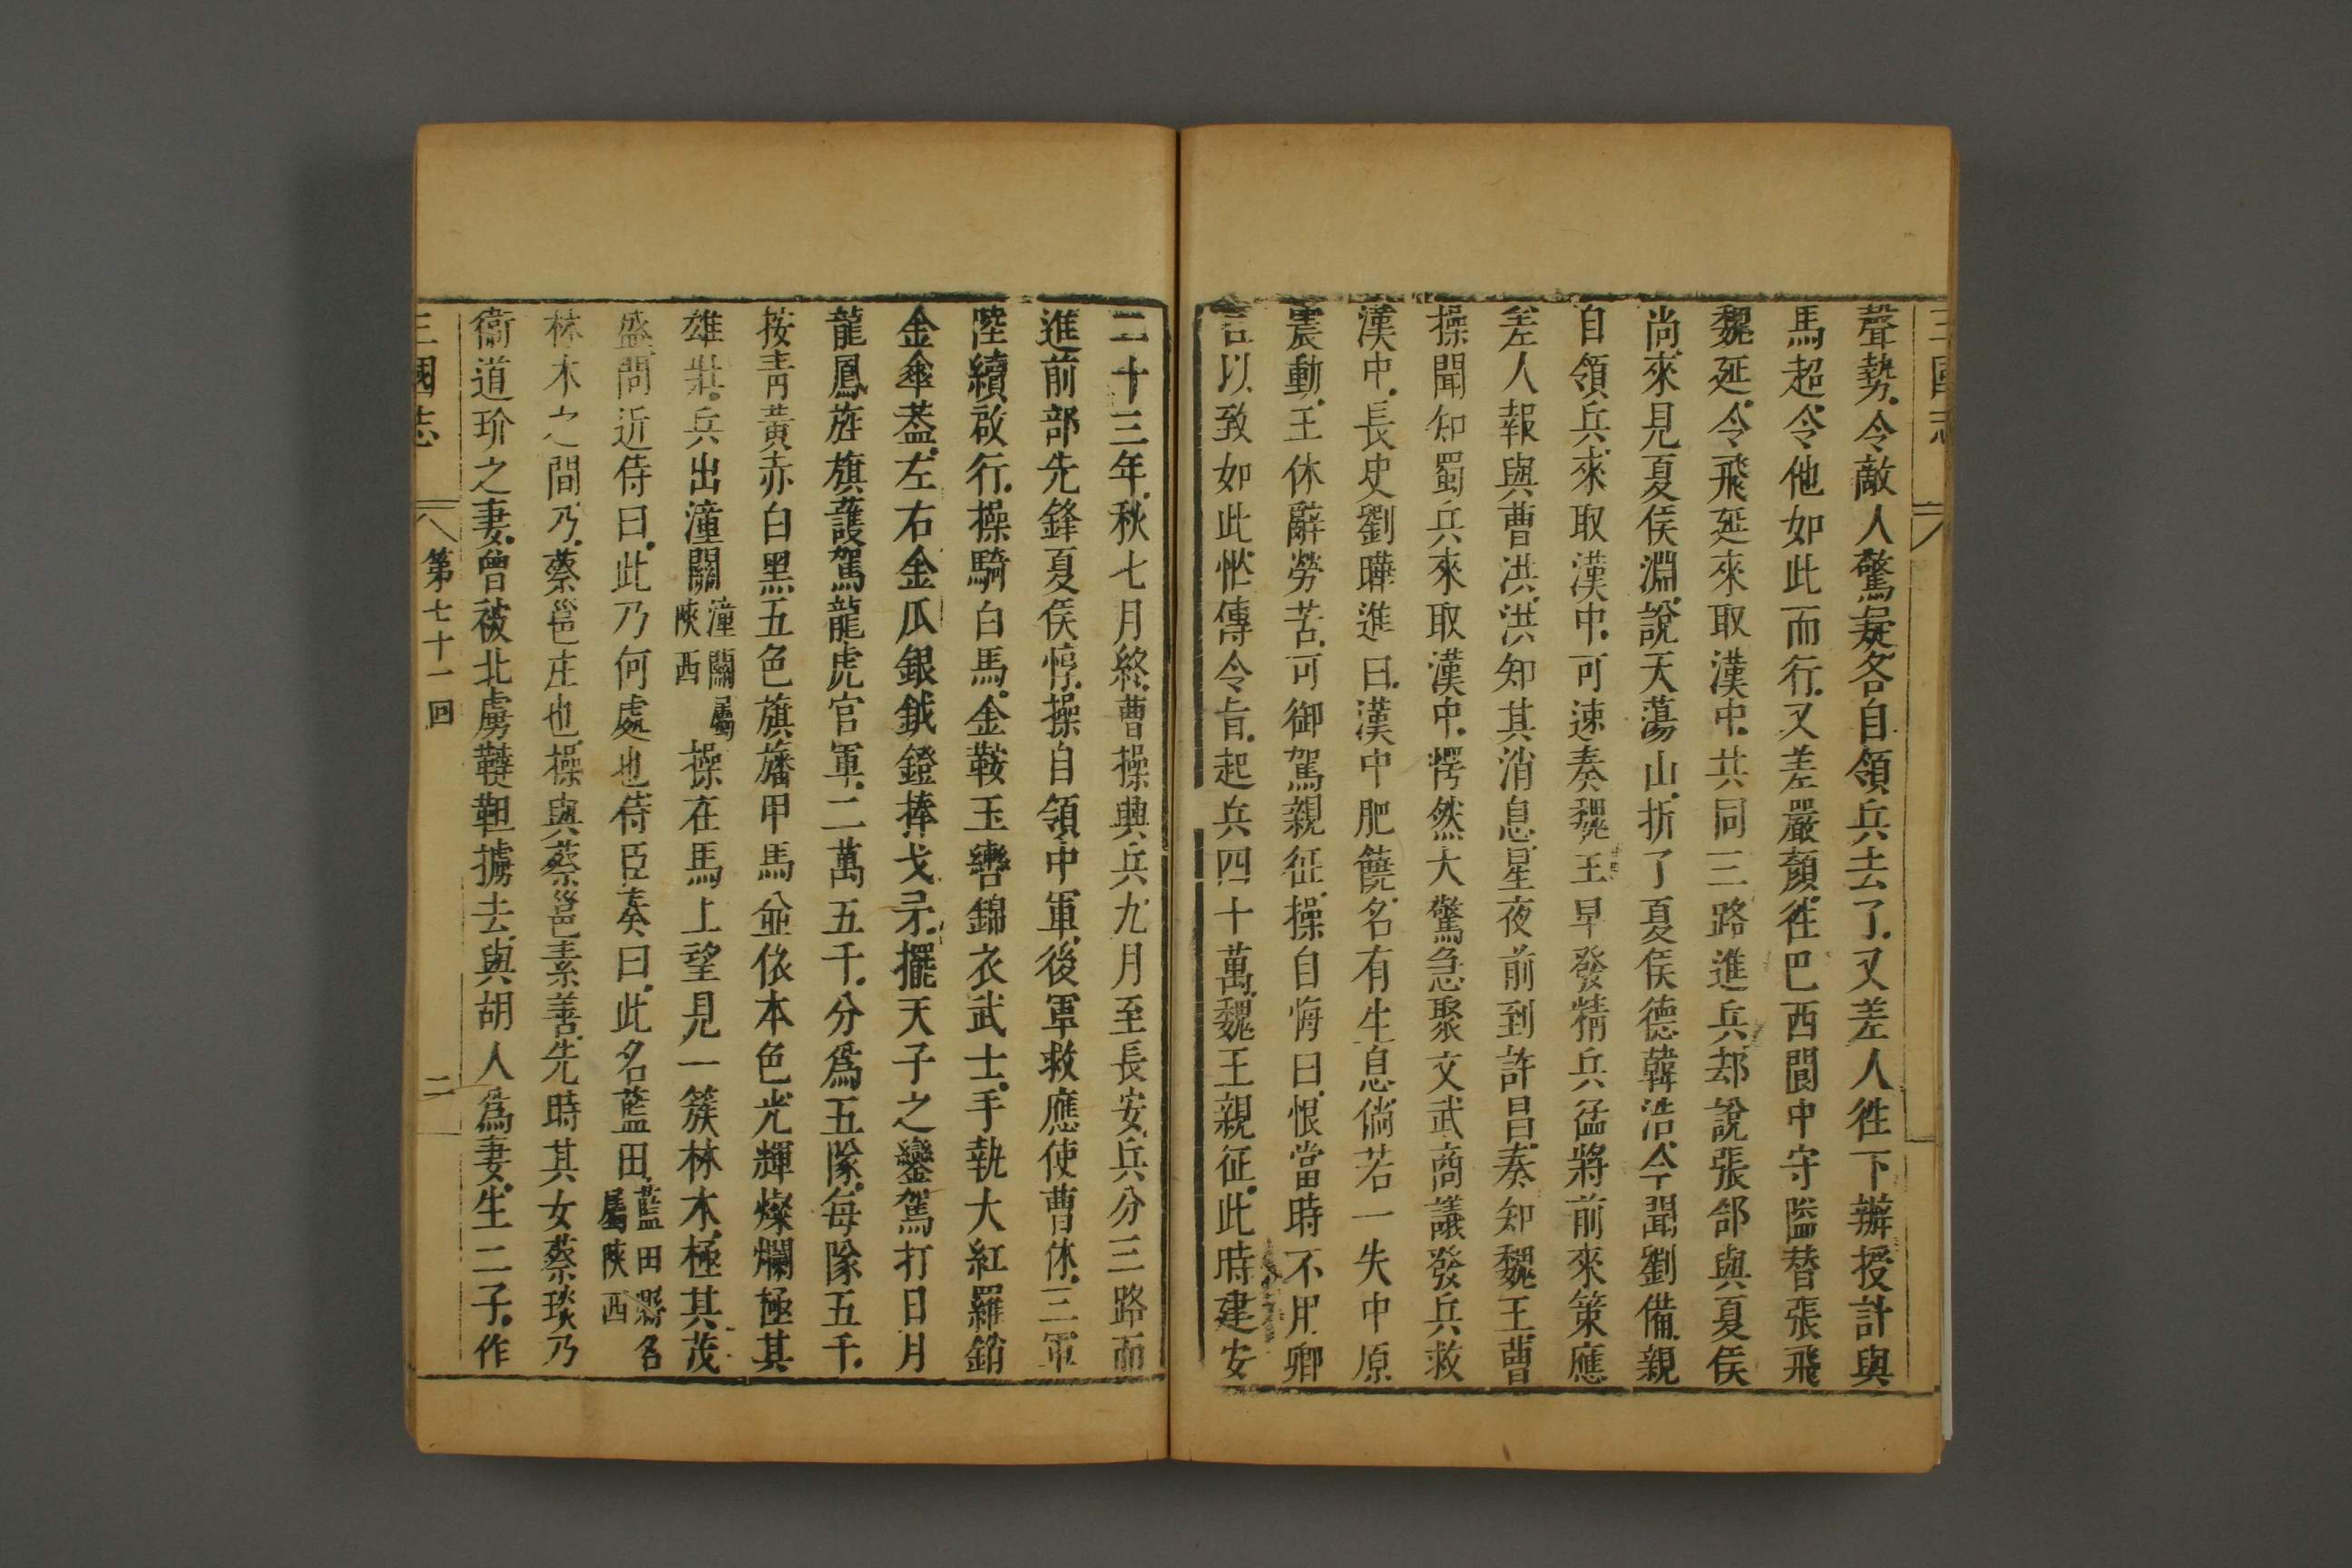 三國志
聲勢令敵人驚疑各自領兵去了又差人徃下辦授計與
馬超令他如此而行又差嚴顏徃巴西閬中守隘替張飛
魏延令飛延來取漢中共同三路進兵却說張郃與夏侯
尚來見夏侯淵說天蕩山折了夏侯德韓浩今聞劉備親
自領兵來取漢中可速奏魏王早發精兵猛將前來策應
差人報與曹洪洪知其消息星夜前到許昌奏知魏王曹
操聞知蜀兵來取漢中愕然大驚急聚文武商議發兵救
漢中長史劉曄進曰漢中肥饒名有生息倘若一失中原
震動王休辭勞苦可御駕親征操自悔曰恨當時不用卿
言以致如此忙傳令旨起兵四十萬魏王親征此時建安
二十三年秋七月終曹操興兵九月至長安兵分三路而
進前部先鋒夏侯惇操自領中軍後軍救應使曹休三軍
陸續啟行操騎白馬金鞍玉轡錦衣武士手執大紅羅銷
金傘葢左右金瓜銀鉞鐙捧戈矛擺天子之鑾駕打日月
龍鳳旌旗護駕龍虎官軍二萬五千分爲五隊每隊五千
按青黃赤白黑五色旗旛甲馬並依本色光輝燦爛極其
雄壯兵出潼關潼關屬陝西操在馬上望見一簇林木極其茂
盛問近侍曰此乃何處也侍臣奏曰此名藍田藍田縣名屬陝西
林木之間乃蔡邕庄也操與蔡邕素善先時其女蔡琰乃
衞道玠之妻曾被北虜韃靼擄去與胡人爲妻生二子作
三國志 第七十一回 二